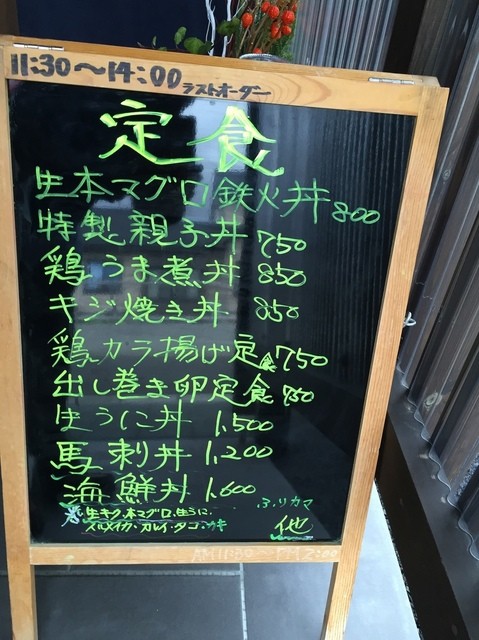 11:30〜14:00 ラストオーダー
定食
生本マグロ鉄火丼 800
特製親子丼 750
鶏うま煮丼 850
キジ焼き丼 850
鶏カラ揚げ定食 750
出し巻き卵定食 750
ほうに丼 1,500
馬刺丼 1,200
海鮮丼 1,600
生サケ、本マグロ、生うに、ぶりカマ
スルメイカ・カレイ・タコ・カキ 他
AM11:30〜PM2:00